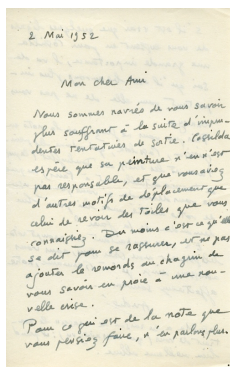 2 Mai 1952
Mon cher Ami
Nous sommes navrés de vous savoir
plus souffrant à la suite d'impru-
dentes tentatives de sortie. Casilda
espère que sa peinture n'en n'est
pas responsable, et que vous aviez
d'autres motifs de déplacement que
celui de revoir des toiles que vous
connaissiez. Du moins c'est ce qu'elle
se dit pour se rassurer, et ne pas
ajouter le remords au chagrin de
vous savoir en proie à une nou-
velle crise.
Pour ce qui est de la note que
vous pensiez faire, n'en parlons plus.